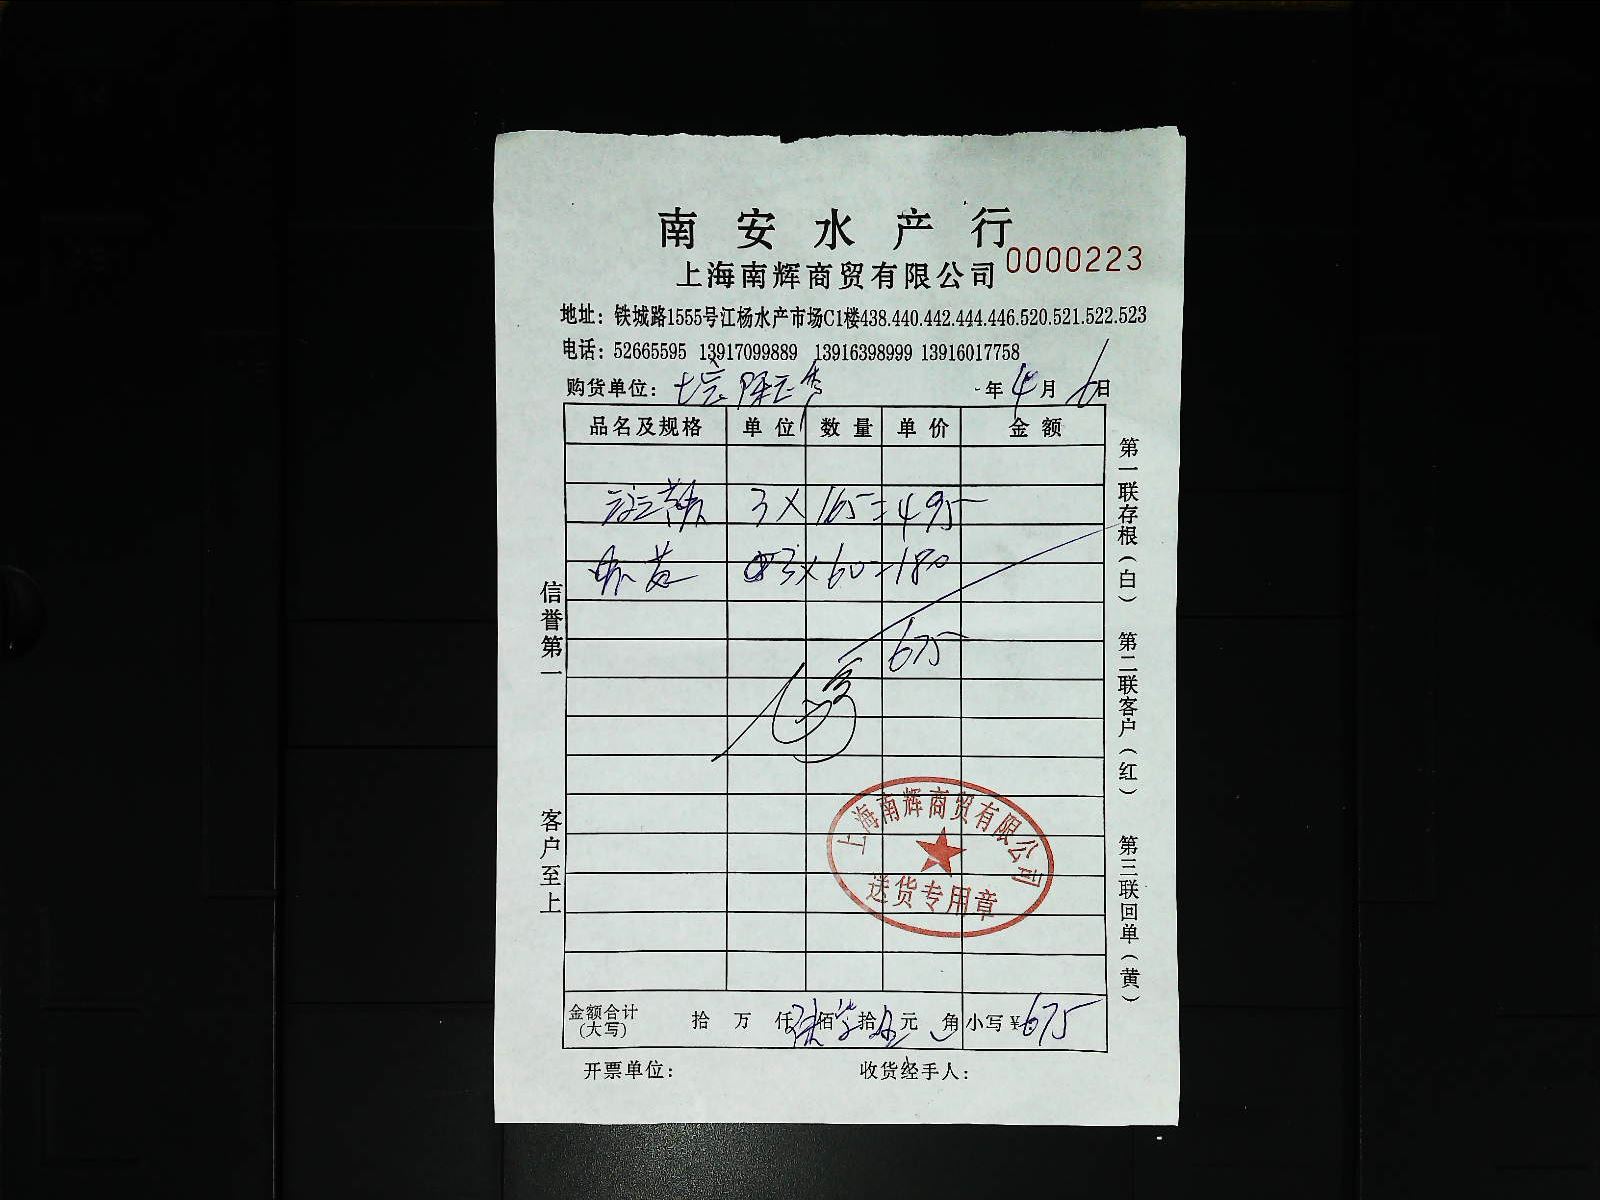 南安水产行
上海南辉商贸有限公司 0000223
地址：铁城路1555号江杨水产市场C1楼438.440.442.444.446.520.521.522.523
电话：52665595 13917099889 13916398999 13916017758
购货单位： 年4月6日
品名及规格 单位 数量 单价 金额
3×165=495
3×60=180
675
上海南辉商贸有限公司
送货专用章
金额合计(大写) 拾 万 仟陆佰柒拾伍元 角 小写¥675
开票单位： 收货经手人：
信誉第一
客户至上
第一联存根(白)
第二联客户(红)
第三联回单(黄)